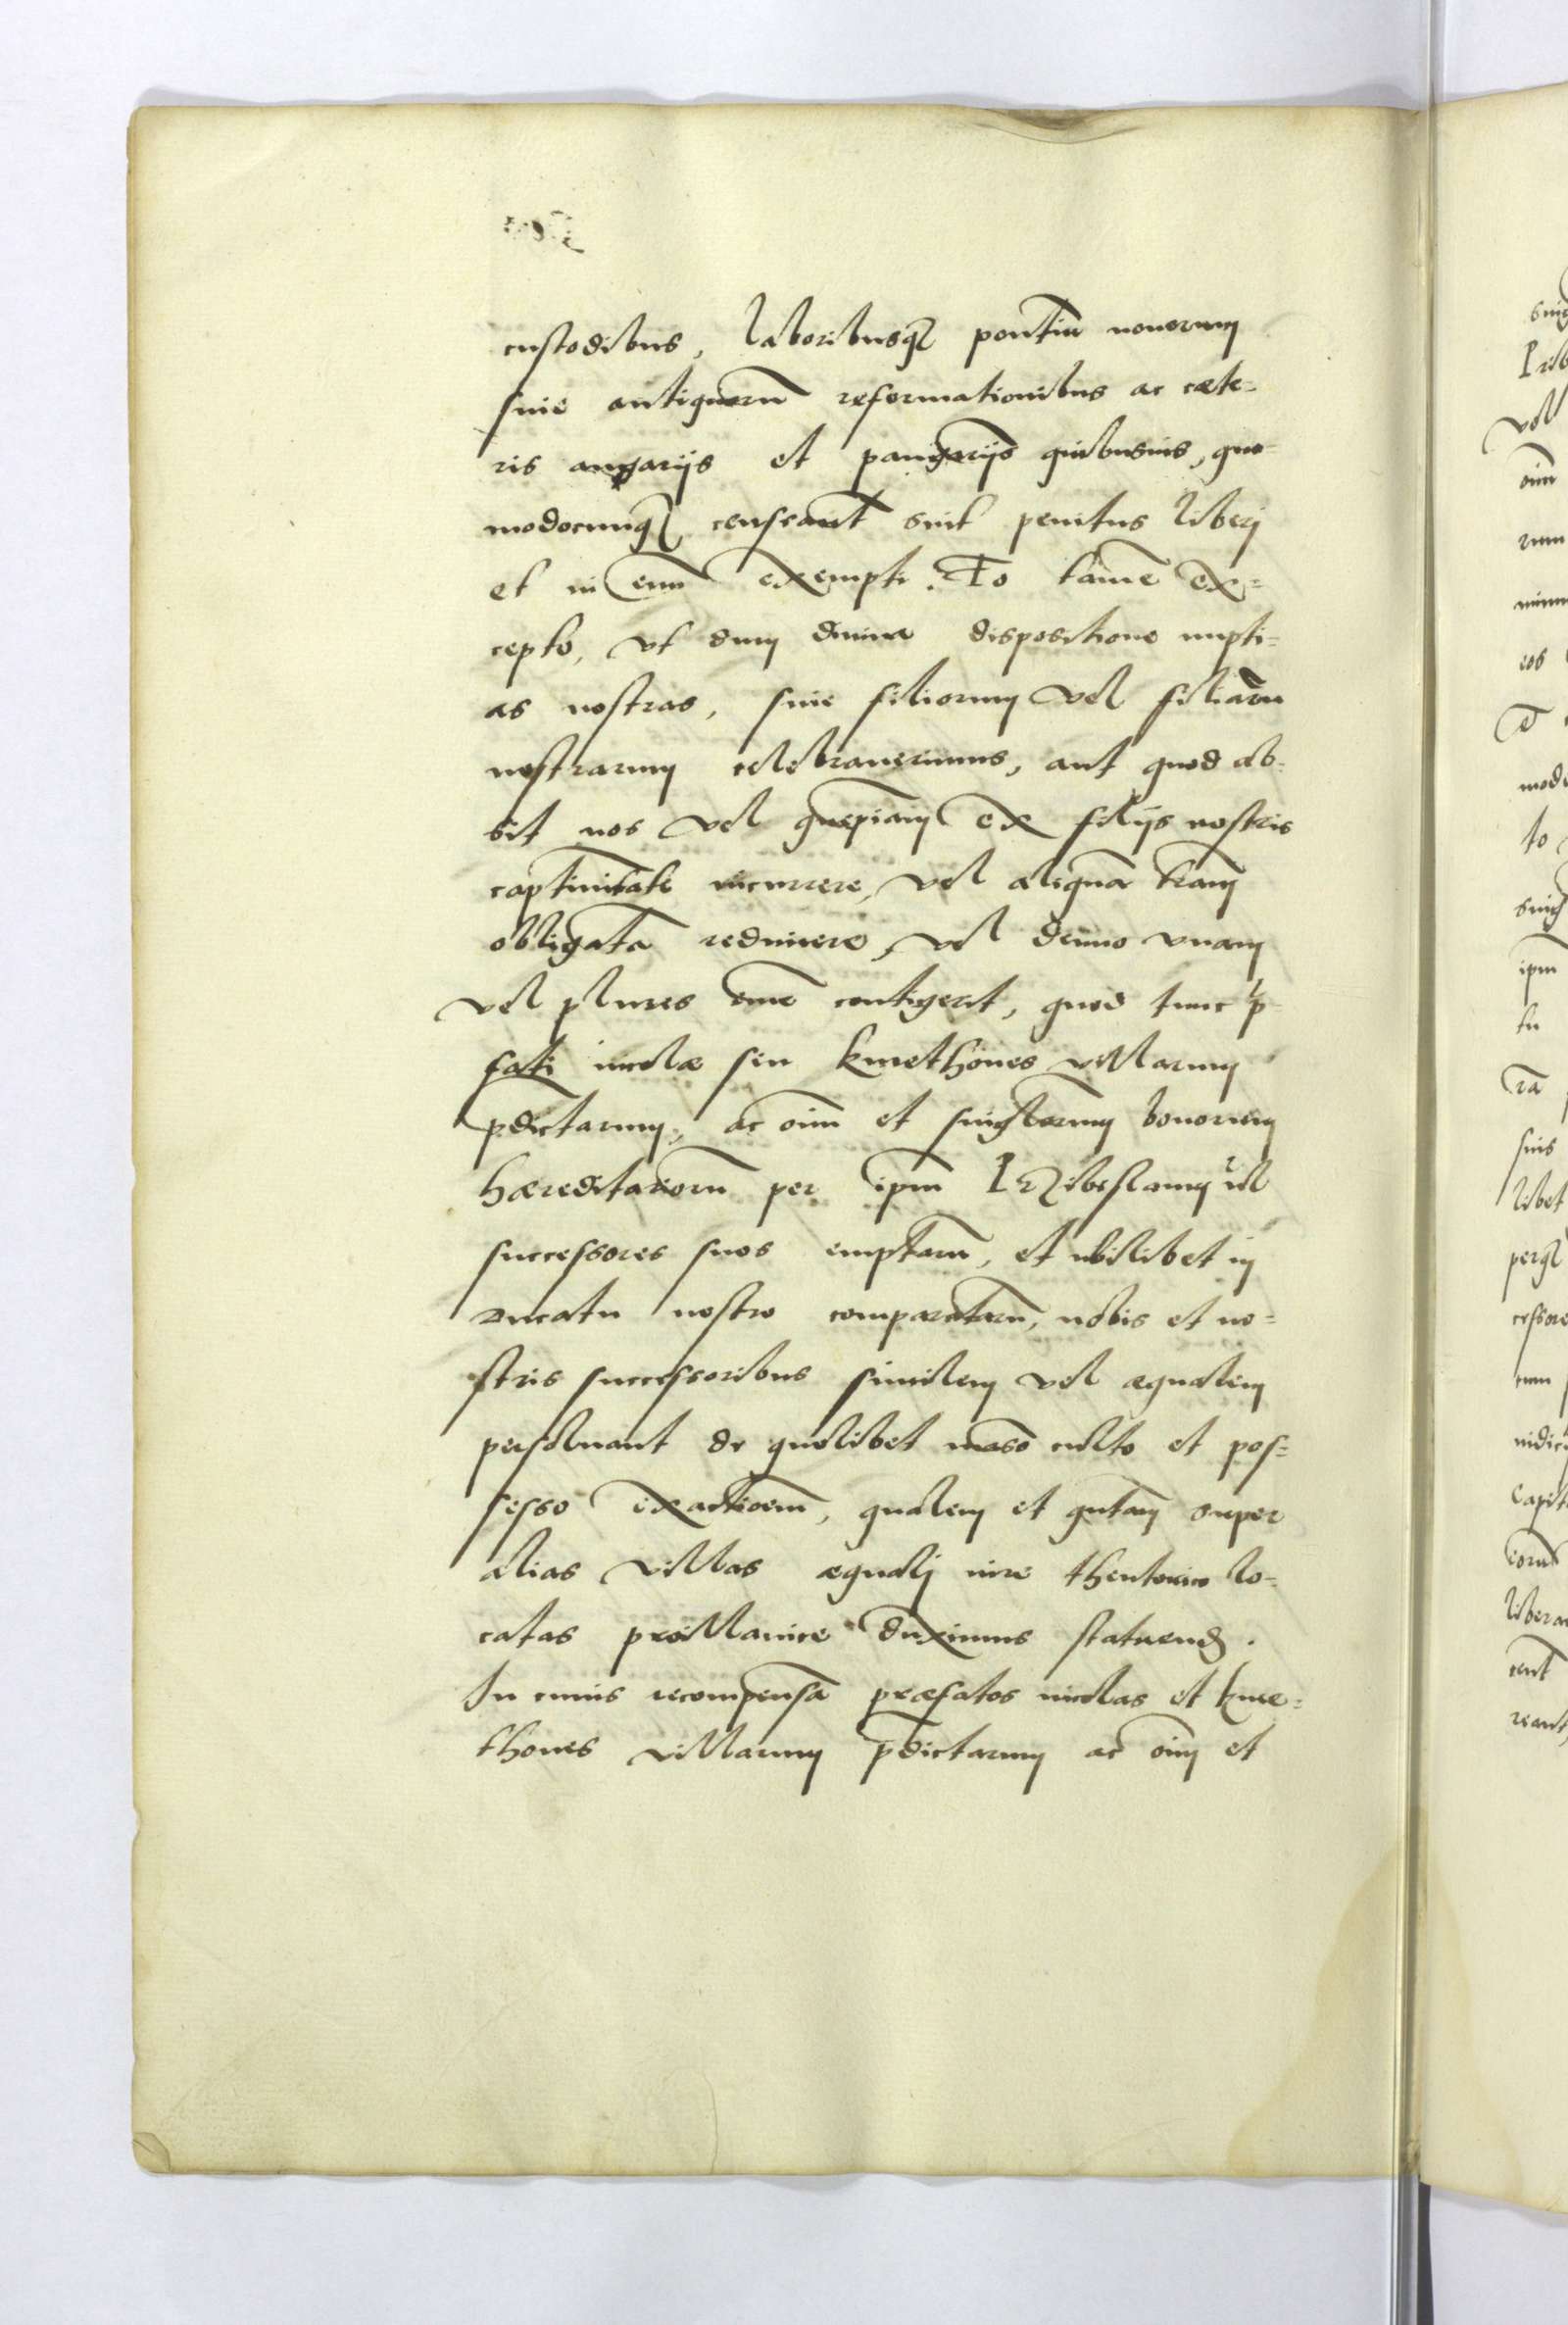 custodibus, laboribusq₃ pontiū nouorum
siue antiquorū reformationibus ac cæte=
ris angarijs et pangarijs quibusuis, quo=
modocunq₃ censeant̄ sint penitus liberj
et in eūm exempti. Eo tamē ex=
cepto, vt dum diuina dispositione nupti=
as nostras, siue filiorum vel filiarū
nostrarum celebrauerimus, aut quod ab=
sit nos vel quepiam ex filijs nostris
captiuitatē incurrere, vel aliquā trām
obligatā redimere, vel denuo vnam
vel plures emē contigerit, quod tunc p̄=
fati incolæ seu kmethones villarum
p̄dictarum, ac oīm et singlorum bonorum
hæreditariorū per ipm̄ Przibislaum ul̄
successores suos emptarū, et ubilibet in
ducatu nostro comparatarū, nobis et no=
stris successoribus similem vel æqualem
persoluant de quolibet manso culto et pos=
sesso exactioem̄, qualem et qūtam super
alias villas æqualj iure theutonico lo=
catas præ duximus statuend.
In cuius recompensā præfatos incolas et kme=
thones villarum p̄dictarum ac oīm et